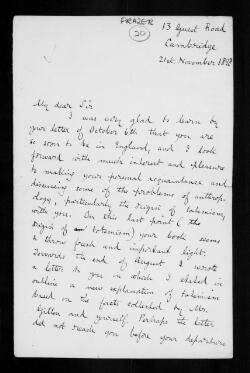 FRAZER
20
13 Guest Road
Cambridge
21st November 1898
My dear Sir
I was very glad to learn by
your letter of October 6th that you are
so soon to be in England, and I look
forward with much interest and pleasure
to making your personal acquaintance and
discussing some of the problems of anthrop-
ology, particularly the origin of totemism,
with you. On this last point (the
origin of totemism) your book seems
to throw fresh and important light.
Towards the end of August I wrote
a letter to you in which I stated in
outline a new explanation of totemism
based on the facts collected by Mr.
Gillen and yourself. Perhaps the letter
did not reach you before your departure